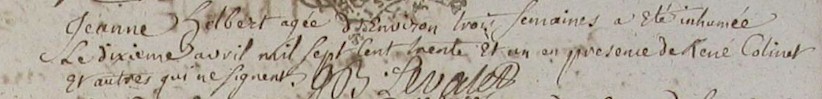 Jeanne Helbert agée d'Environ trois semaines a eté inhumée
Le dixieme avril mil sept cent trente Et un en presence de René Colinet
Et autres qui ne signent.